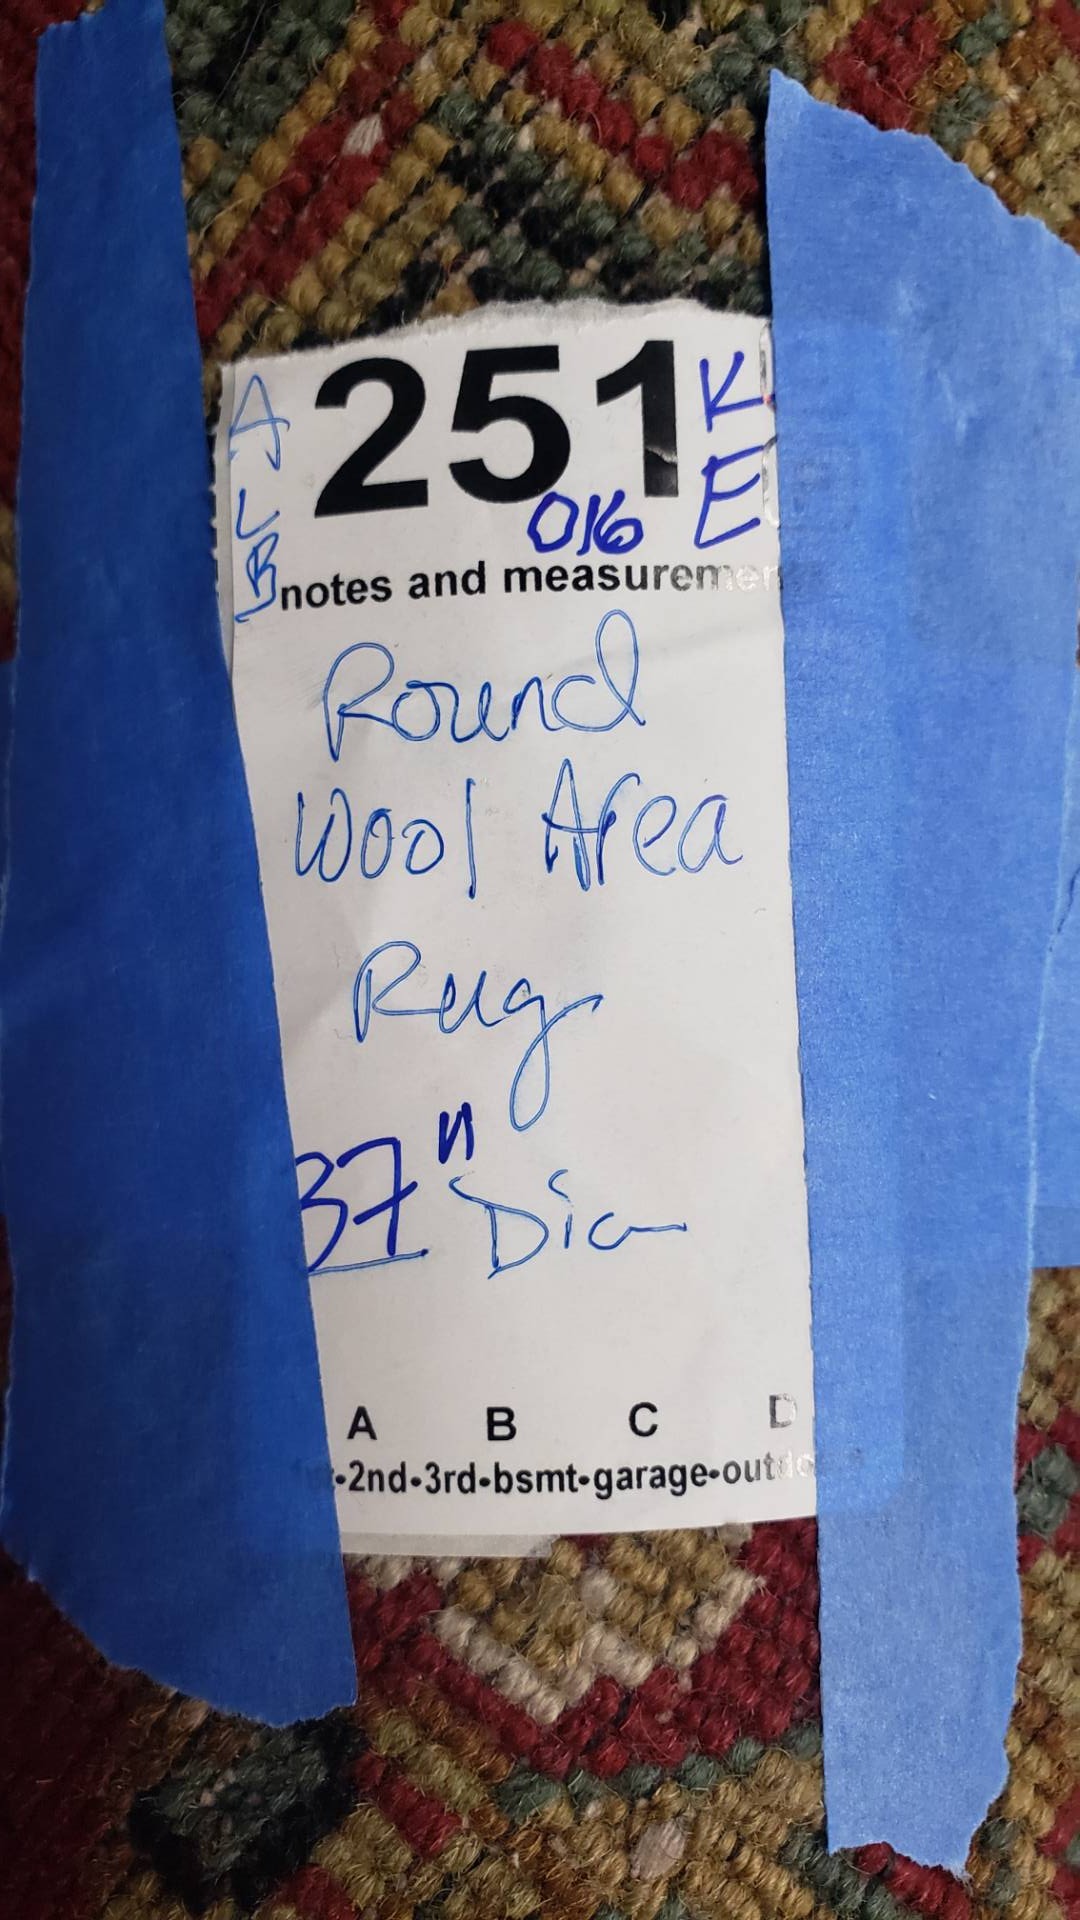 251
ALB
KE
016
notes and measuremen
Round
Wool Area
Rug
37" Dia
A B C D
•2nd•3rd•bsmt•garage•outdo